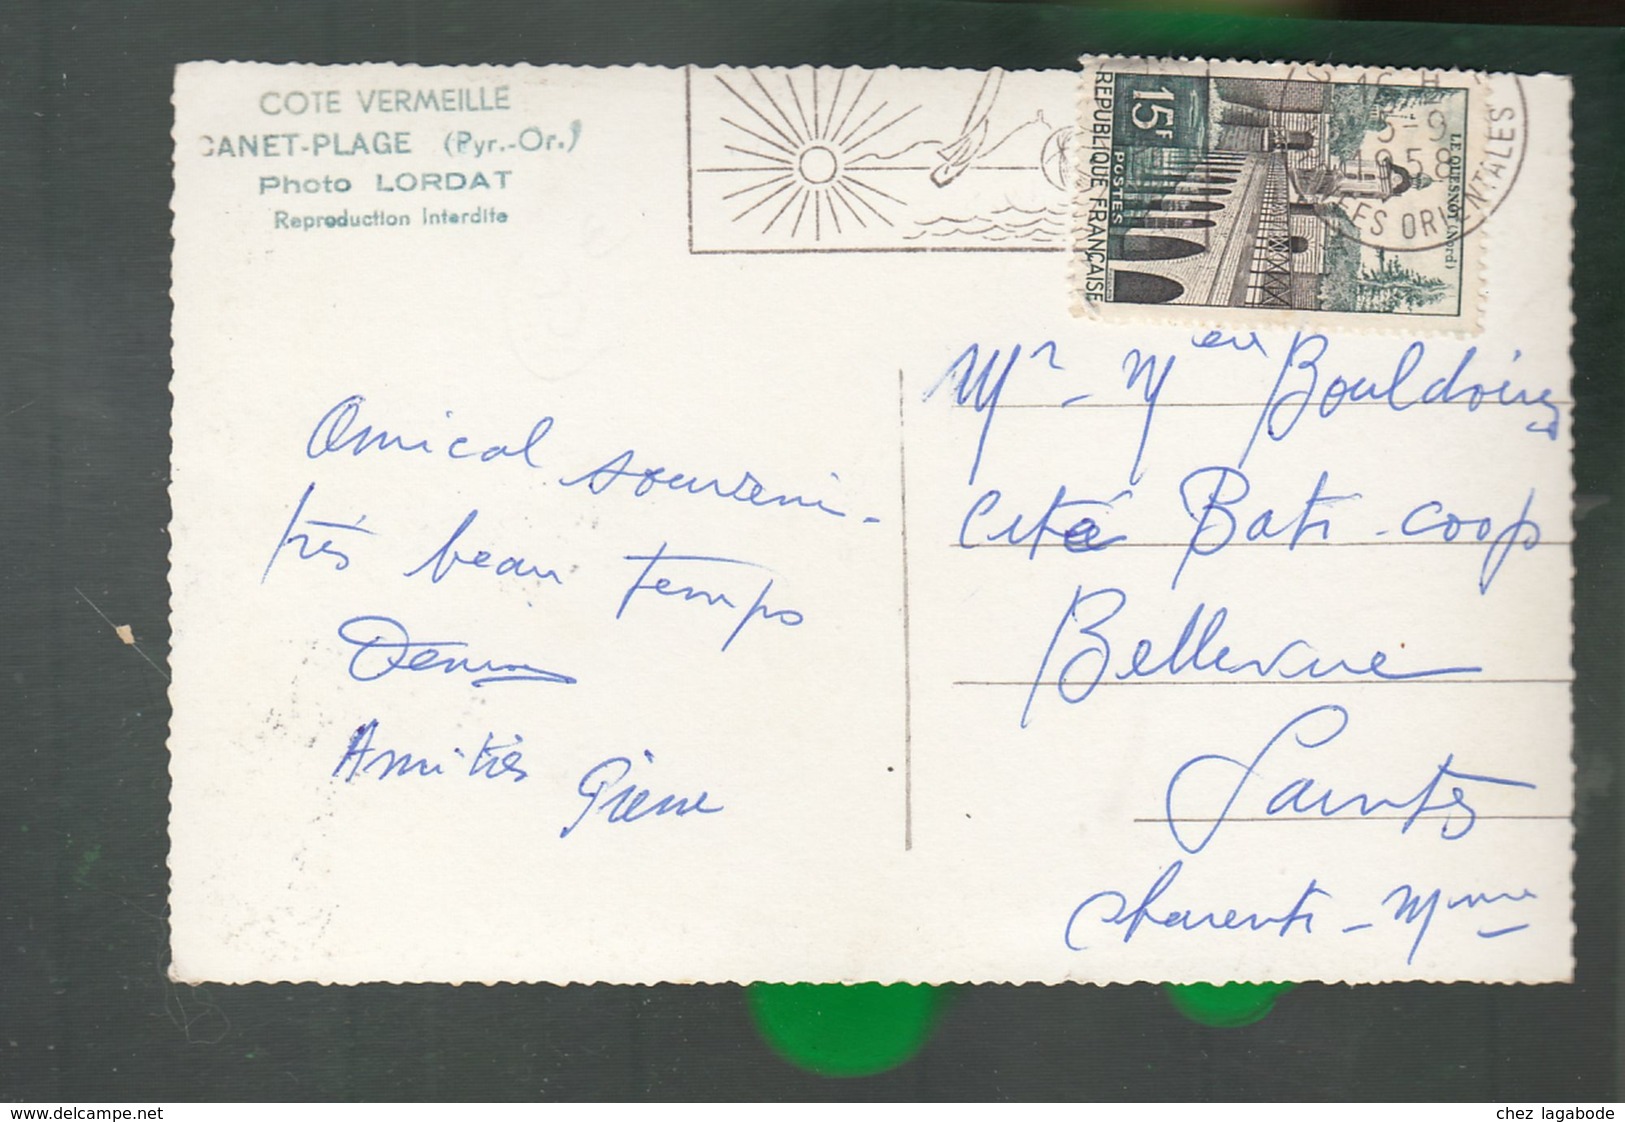 COTE VERMEILLE
CANET-PLAGE (Pyr.-Or.)
Photo LORDAT
Reproduction Interdite
16 H
5-9
1958
EES ORIENTALES
15F
POSTES
REPUBLIQUE FRANÇAISE
LE QUESNOY (Nord)
Amical souvenir
très beau temps
Amitiés Pierre
Mr - Mme
Cité Bati-coop
Bellevue
Saintes
Charente-Mme
www.delcampe.net
chez lagabode